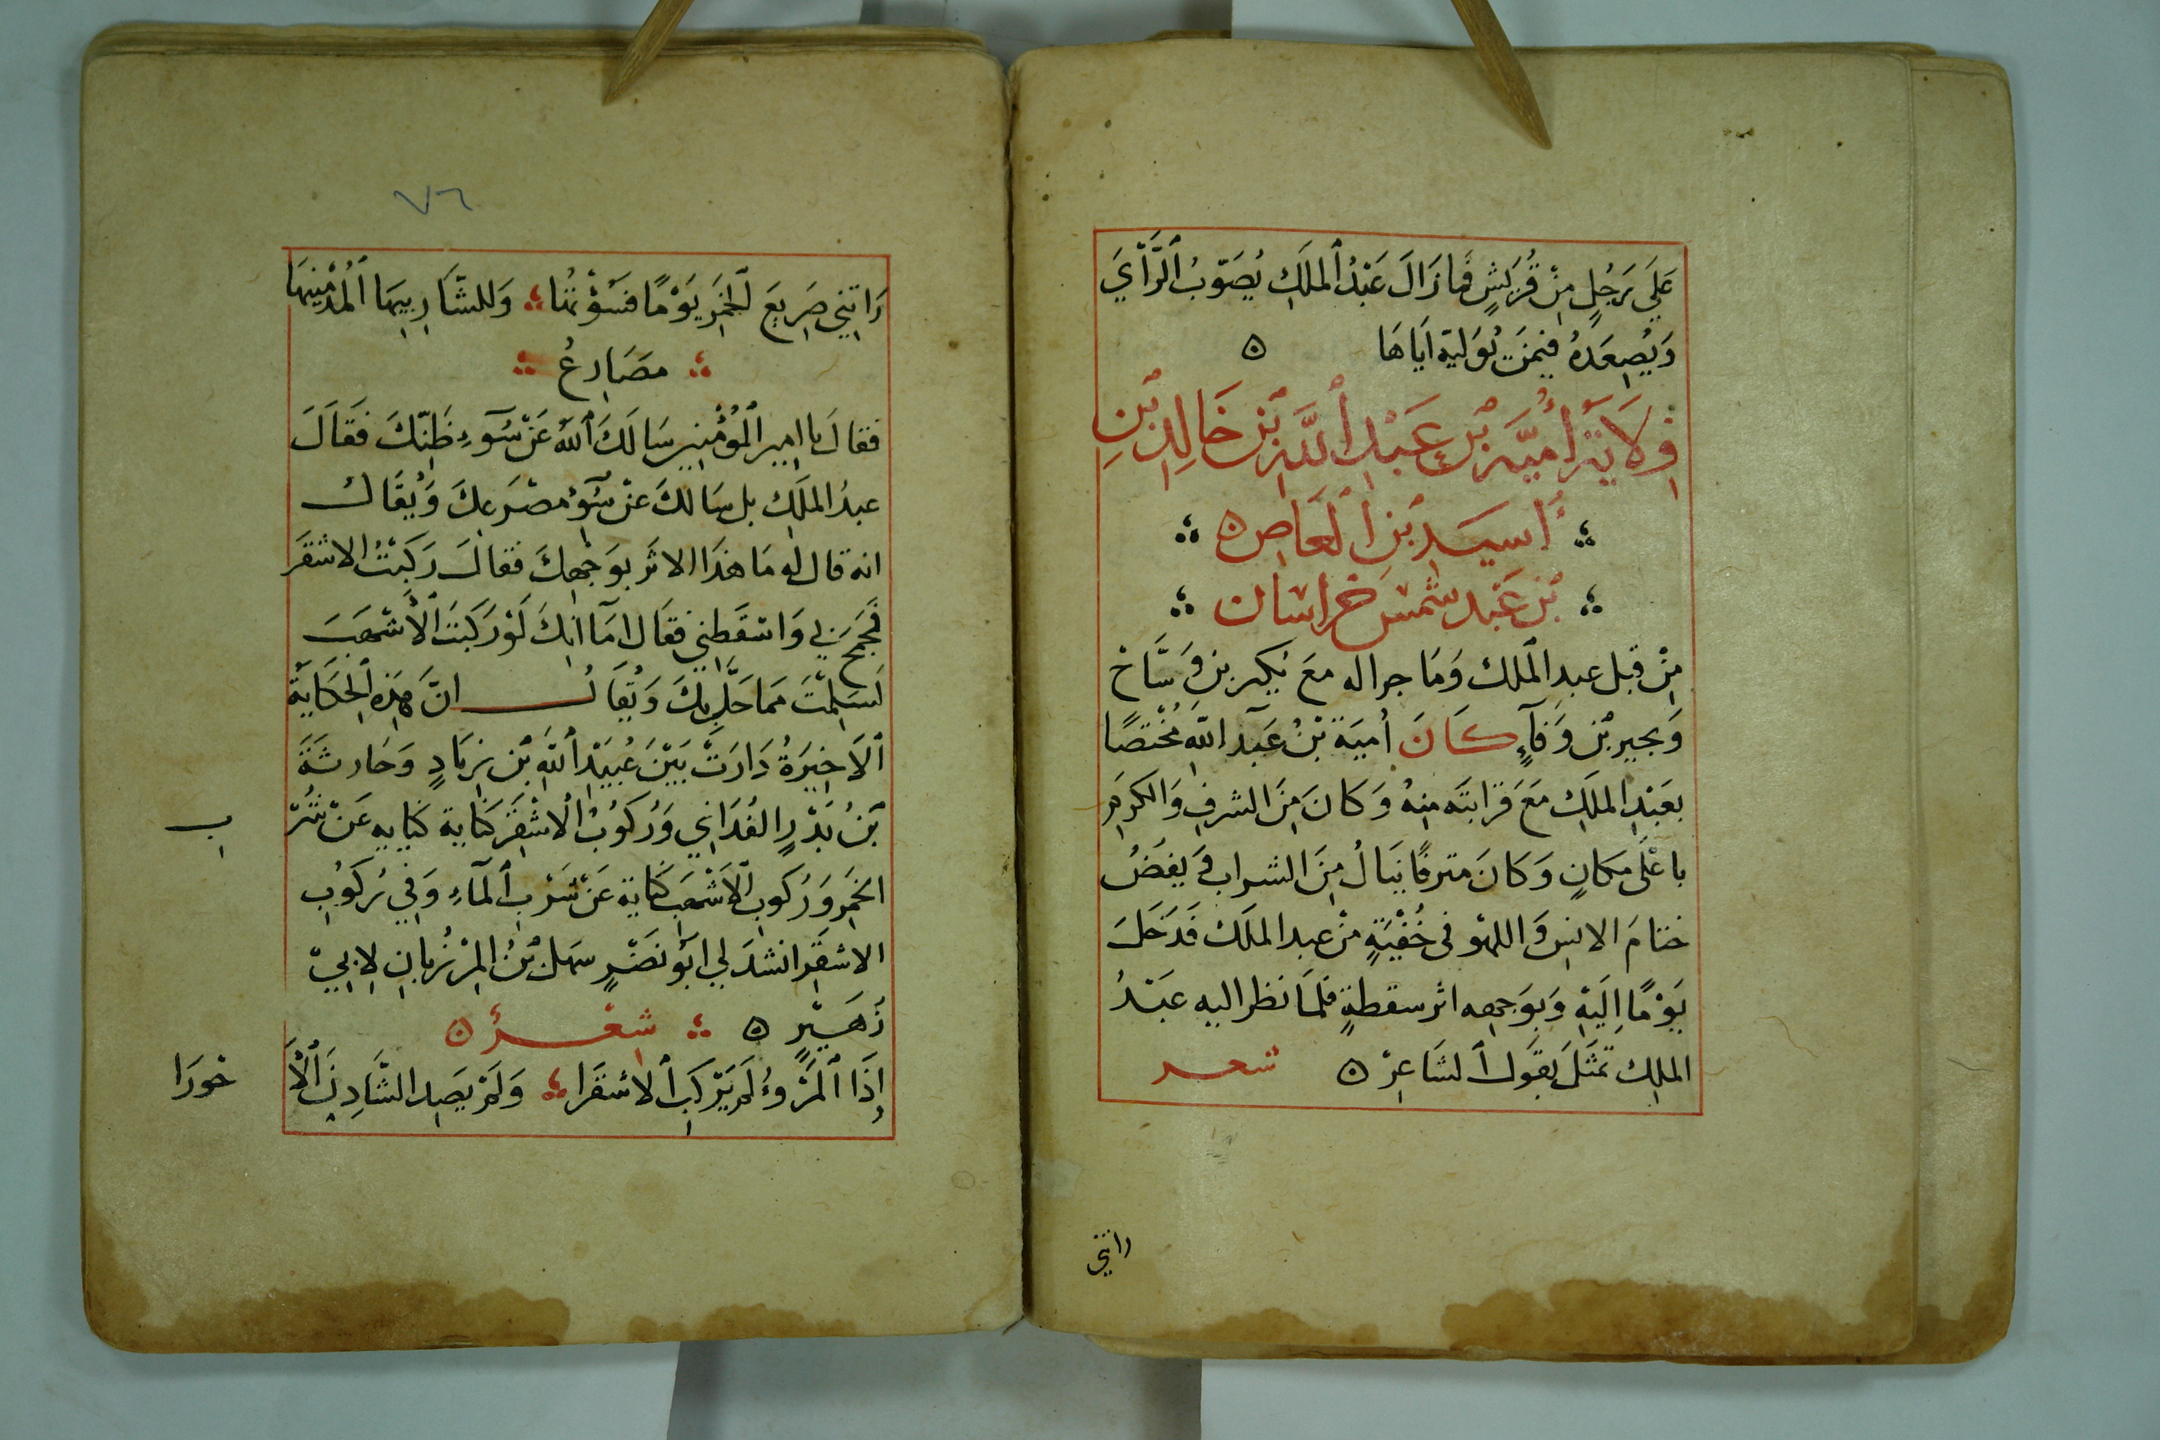 عَلَي رَجُلٍ مِنْ قُرَيشٍ فَما زَالَ عَبْدُ ٱلملَكِ يُصَوّبُ ٱلرَّأيَ
وَيُصِعَدهُ فيمَن يُوَليَة اَيَاهَا
وِلَايَة أُميَّة بْن عَبْدِ ٱللَّهِ بْن خَالِدِ بْنِ
أُسيَدِ بْنِ اَلعَاصِ
بْن عَبْد شَمْس خراسَان
مِنْ قبل عبدِ الملك وَمَا جرا له معَ بُكير بن وِسَّاخ
وَبحيرِ بْن وَفآءٍ كَانَ اُميَة بْنُ عَبَد اللّه مُخْتصًا
بعَبْدِ الملَكِ مَعَ قرابتَه مِنهُ وَكانَ مِنَ الشرفِ وَالكرمِ
باعْلَى مكانٍ وَكانَ مترفًا يَنَالُ مِنَ الشراب وَيفضُ
ختامَ الانسِ وَاللهوُ فى خُفْيَةٍ مْن عبد الملَك فَدَخَلَ
يَوْمًا اِليَهْ وَبوَجهه اثر سقطةٍ فلمَا نظر اليه عَبَدُ
الملِك تمثَلَ بقَول ٱلشَاعِرْ شعر
راتني
٧٦
رَاتِني صَرِيعَ ٱلخمَر يَوْمًا فَسُؤْتُها وَللشَّارِبِيهَا ٱلمُدْمِنِيهَا
مصَارِعُ
فقال يا امير ٱلموُمْنِينَ سَالَكَ ٱللّه عَنْ سُوَءِ ظَنِّكَ فَقَالَ
عبدُ الملَكِ بل سَالكَ عنْ سُوْء مصْرَعِكَ وَيُقَاك
انه قال له مَا هذَا الاثَر بوَجْهِكَ فقالَ رَكَبْتُ الاشقَرَ
فَجَمَحَ بي وَاسْقَطِنِي فقَال اَمَا انِكَ لَوْ رَكبْتَ ٱلْاَشْهَبَ
لَسَلِمْتَ مَما حَلَّ بِكَ وَيُقَالُ انَّ هٰذِهِ ٱلحِكَايَةَ
ٱلَاخِيرَةُ دَارَتْ بَيْنَ عُبَيْد ٱللَّه بْن زِيَادٍ وَحَارثَةَ
بْنُ بَدْرٍ الغُدَاني وَرُكوُبُ ٱلْاشْقَر كَنَاية كنايه عَنْ شُرْ
ب
الخَمِر وَرُكوُبِ ٱلاَشْهَب كناية عَنْ شَرْبِ ٱلمآءِ وَفي رُكوُبِ
الاشقَر انشدَ لي ابَوُ نَصْرٍ سَهل بْنُ المِرْزُبانِ لِابيْ
زُهَيْرٍ شِعْرٌ
اِذَا ٱلمَرْءُ لَم يَرْكَبِ ٱلاشقَرا وَلمْ يَصِد الشَّادِنَ ٱلْاَ
حورَا